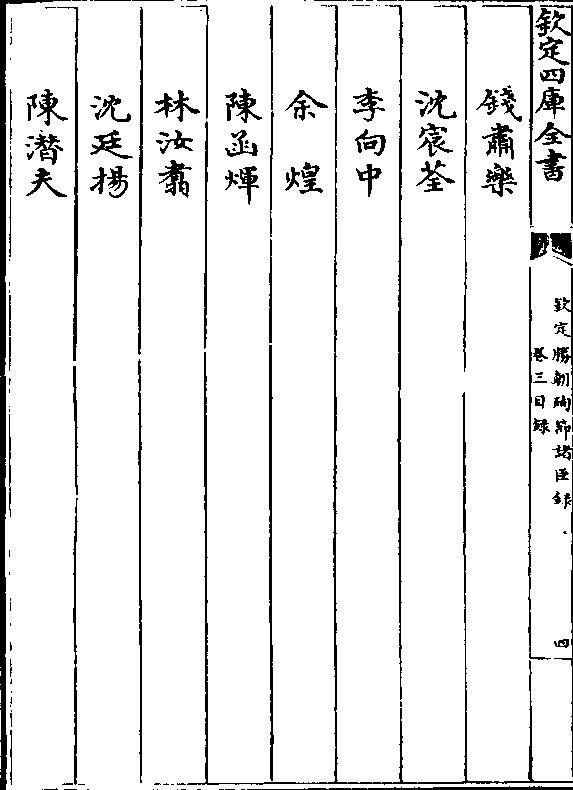 欽定四庫全書
欽定勝朝殉節諸臣録
卷三目録
四
錢肅樂
沈宸荃
李向中
余煌
陳函輝
林汝翥
沈廷揚
陳潛夫